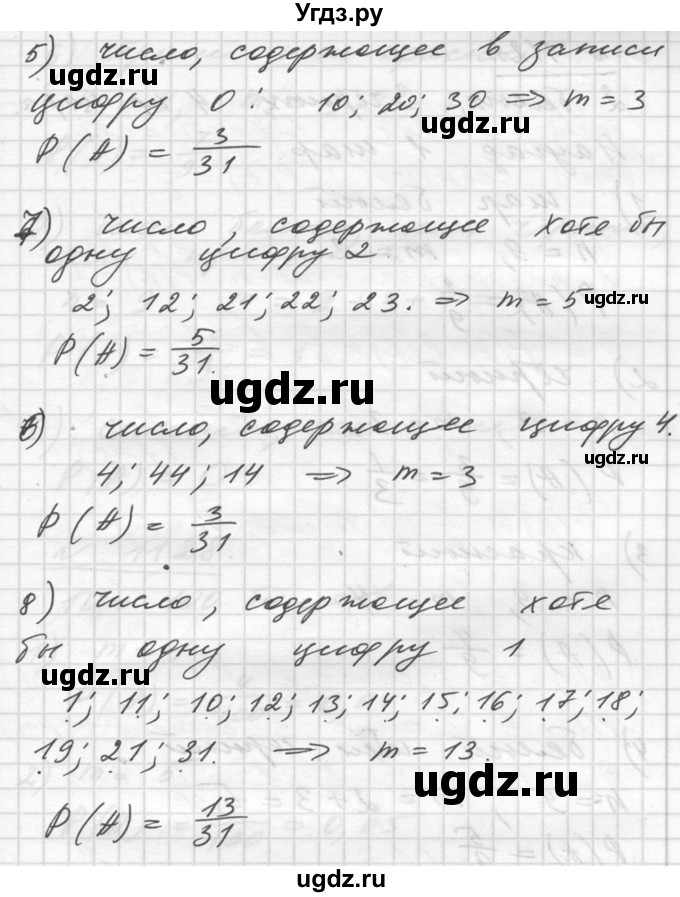 Угдз.ру
5) число, содержощее в записи
цифру 0: 10; 20; 30 => m = 3
P(A) = 3/31
7) число, содержощее хоте бы
одну цифру 2
2; 12; 21; 22; 23. => m = 5
P(A) = 5/31.
6) число, содержощее цифру 4.
4; 44; 14 => m = 3
P(A) = 3/31
8) число, содержощее хоте
бы одну цифру 1
1; 11; 10; 12; 13; 14; 15; 16; 17; 18;
19; 21; 31. => m = 13.
P(A) = 13/31
ugdz.ru
ugdz.ru
ugdz.ru
ugdz.ru
ugdz.ru
ugdz.ru
ugdz.ru
ugdz.ru
ugdz.ru
ugdz.ru